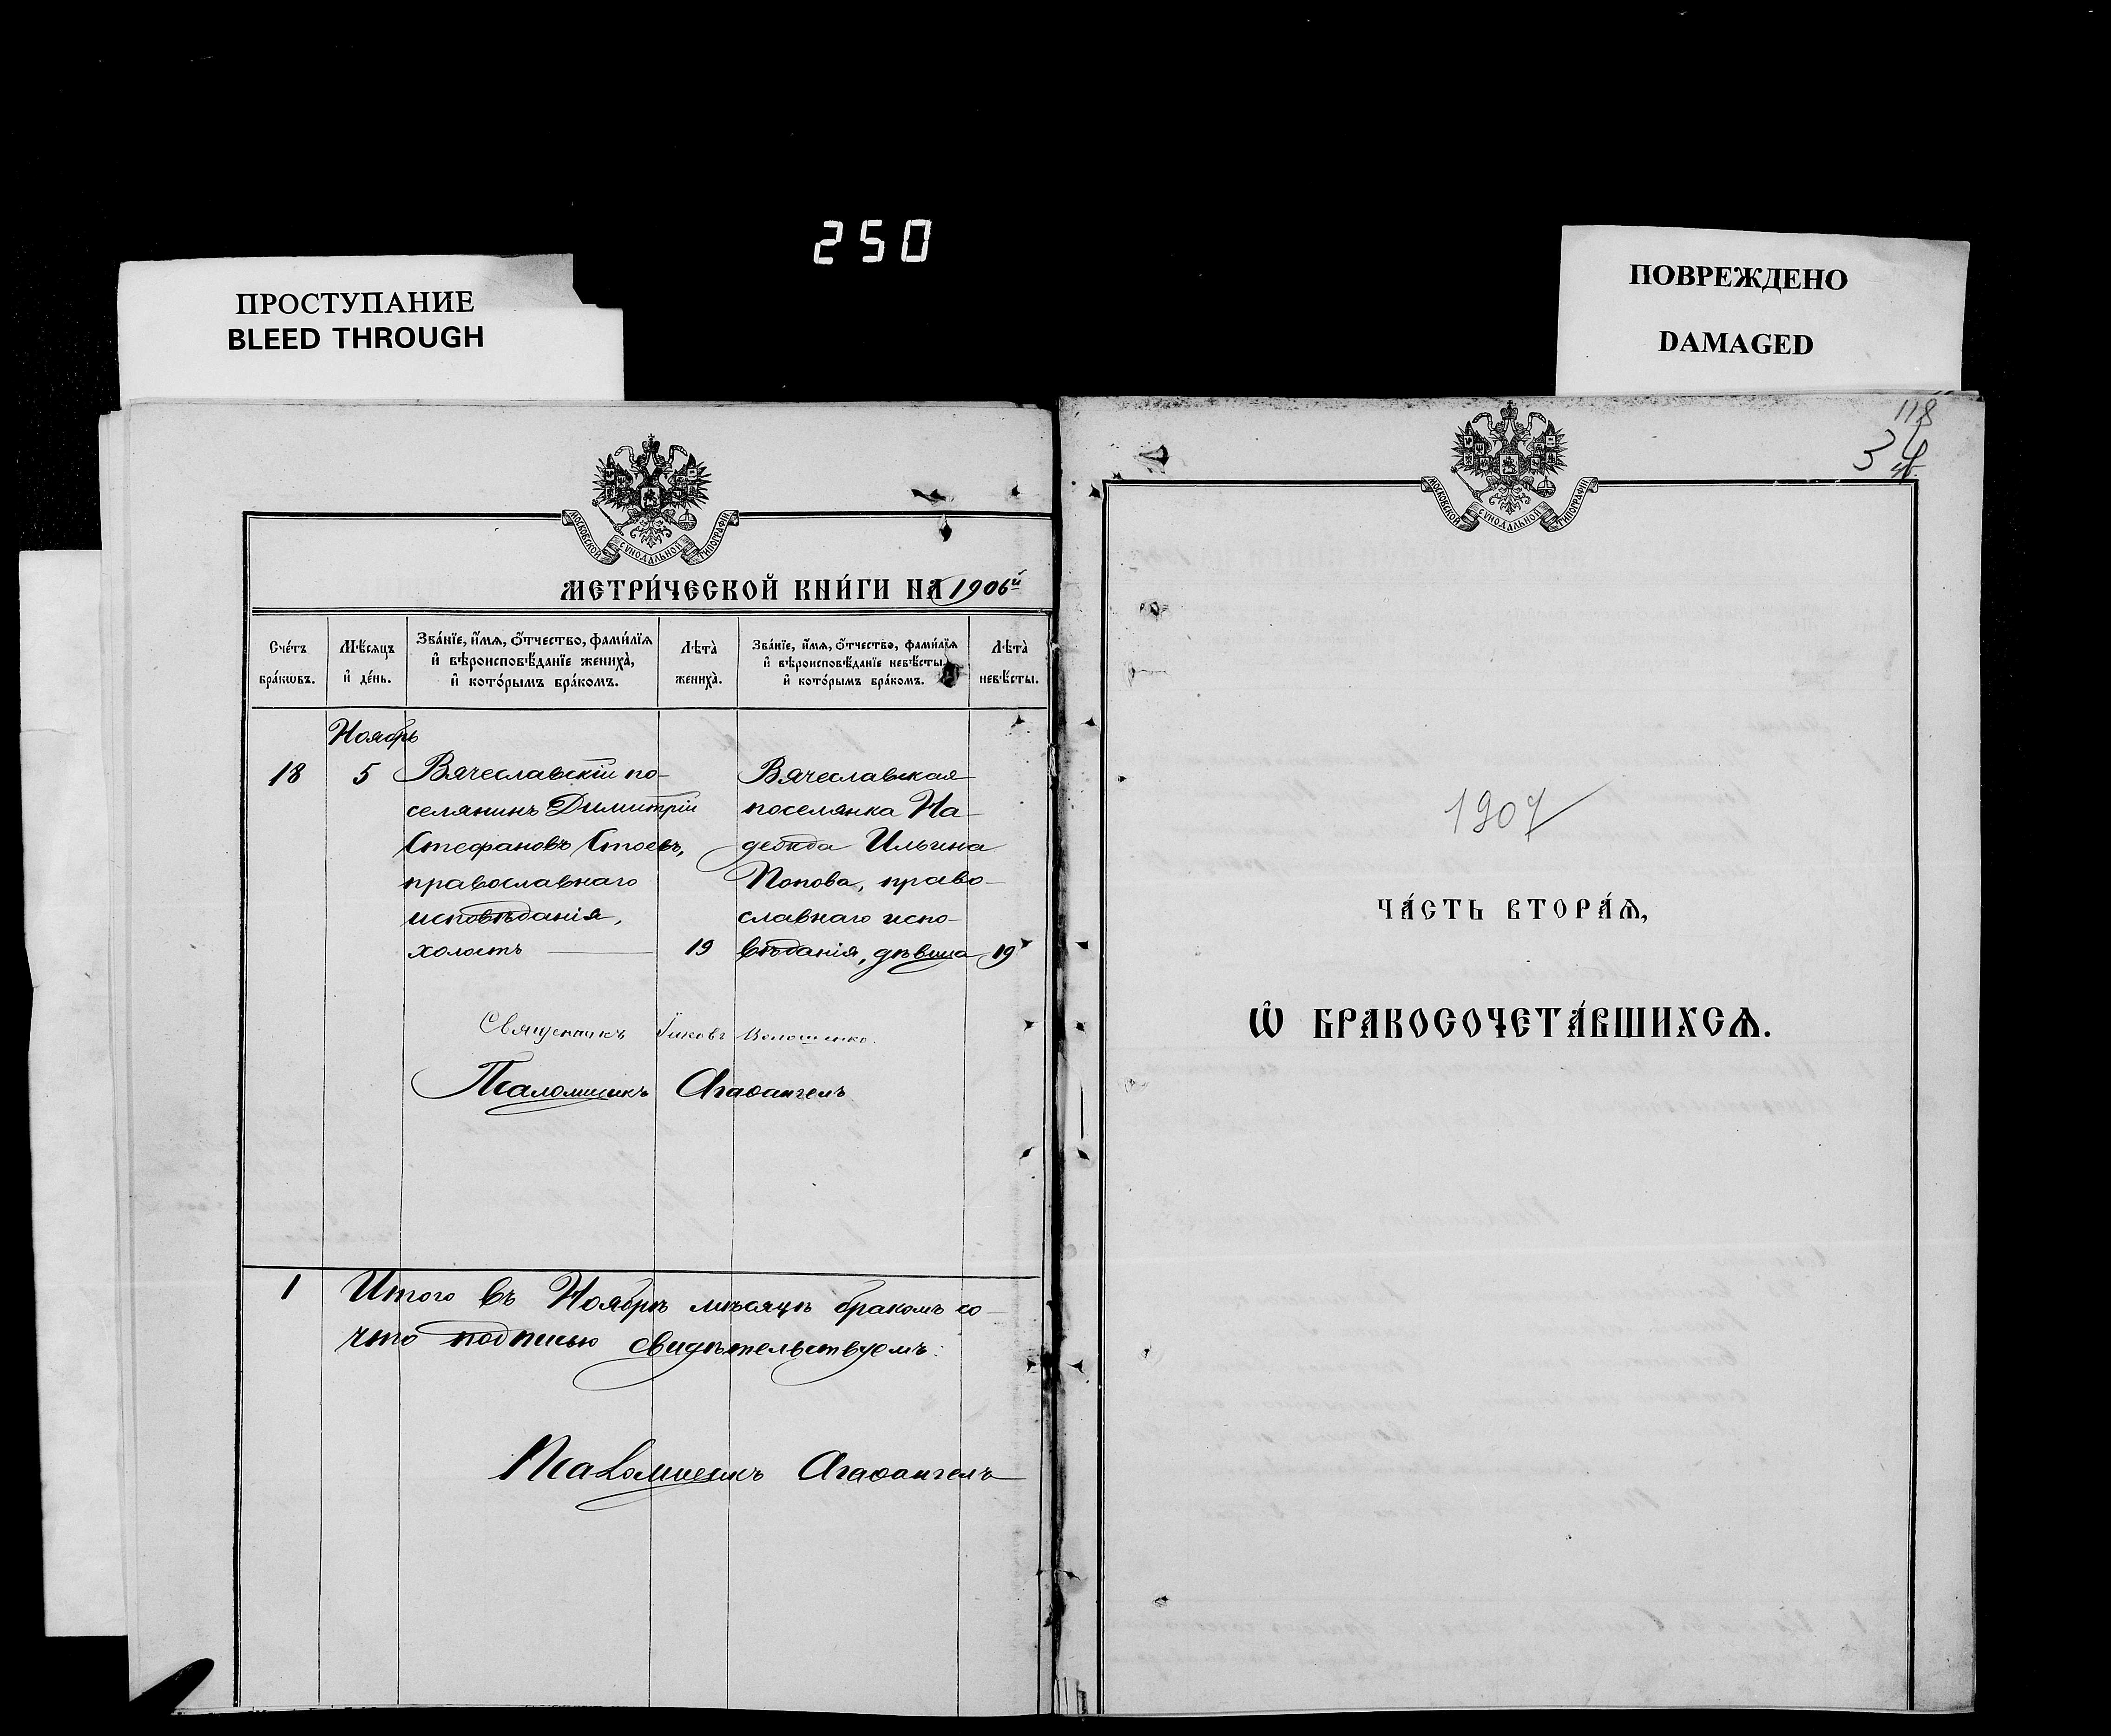 250
ПРОСТУПАНИЕ
BLEED THROUGH
ПОВРЕЖДЕНО
DAMAGED
МОСКОВСКОЙ СУНОДАЛЬНОЙ ТИПОГРАФІИ
МЕТРИ́ЧЕСКОЙ КНИ́ГИ НА 1906й
Сче́тъ бра́кѡвъ.
Мѣ́сяцъ и҆ де́нь.
Зва́нїе, и҆́мя, ѻ҆́тчество, фами́лїя
и҆ вѣроисповѣ́данїе жениха̀,
и҆ кото́рымъ бра́комъ.
Лѣта̀ жениха̀.
Зва́нїе, и҆́мя, ѻ҆́тчество, фами́лїя
и҆ вѣроисповѣ́данїе невѣ́сты
и҆ кото́рымъ бра́комъ.
Лѣта̀ невѣ́сты.
Ноябрь
18 5
Вячеславскій по-
селянинъ Димитрій
Стефановъ Стоевъ,
православнаго
исповѣданія,
холостъ 19
Вячеславская
поселянка На-
дежда Ильина
Попова, право-
славнаго испо-
вѣданія, дѣвица 19
Священникъ Іаковъ
Псаломщикъ Агаѳангелъ
1 Итого въ Ноябрѣ мѣсяцѣ бракомъ со-
что подписью свидѣтельствуемъ:
Псаломщикъ Агаѳангелъ
118
МОСКОВСКОЙ СУНОДАЛЬНОЙ ТИПОГРАФІИ
1907
ЧА́СТЬ ВТОРА́Ѧ,
Ѽ БРАКОСОЧЕТА́ВШИХСѦ.